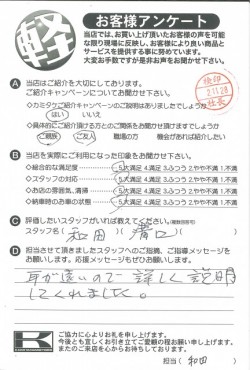 軽
お客様アンケート
当店では、お買い上げ頂いたお客様の声を可能
な限り現場に反映し、お客様により良い商品と
サービスを提供する事に努めています。
大変お手数ですが是非お声をお聞かせ下さい。
A 当店はご紹介を大切にしております。
ご紹介キャンペーンについてお聞かせ下さい
・カミタケご紹介キャンペーンのご説明はありましたでしょうか
はい いいえ
・具体的にご紹介頂ける方とのご関係をお聞かせ頂けますでしょうか
ご親族 ご友人 職場の方 機会があれば紹介したい
B 当店を実際にご利用になった印象をお聞かせ下さい
・総合的な満足度 5大満足 4.満足 3.ふつう 2.やや不満 1.不満
・スタッフの対応 5大満足 4.満足 3.ふつう 2.やや不満 1.不満
・お店の雰囲気、清潔 5大満足 4.満足 3.ふつう 2.やや不満 1.不満
・納車時のお車の状態 5大満足 4.満足 3.ふつう 2.やや不満 1.不満
C 評価したいスタッフがいれば教えてください。(複数回答可)
スタッフ名( 和田 )( 溝口 )
D 担当させて頂きましたスタッフへのご指摘、ご指導メッセージを
お願いします。応援メッセージもぜひお願いします。
耳が遠いので詳しく説明
してくれました。
ご協力に心よりお礼を申し上げます。
今後とも宜しくお引き立てご愛顧の程お願い申し上げます。
またのご来店を心からお待ちしております。
担当( 和田 )
検印
2.11.28
社長